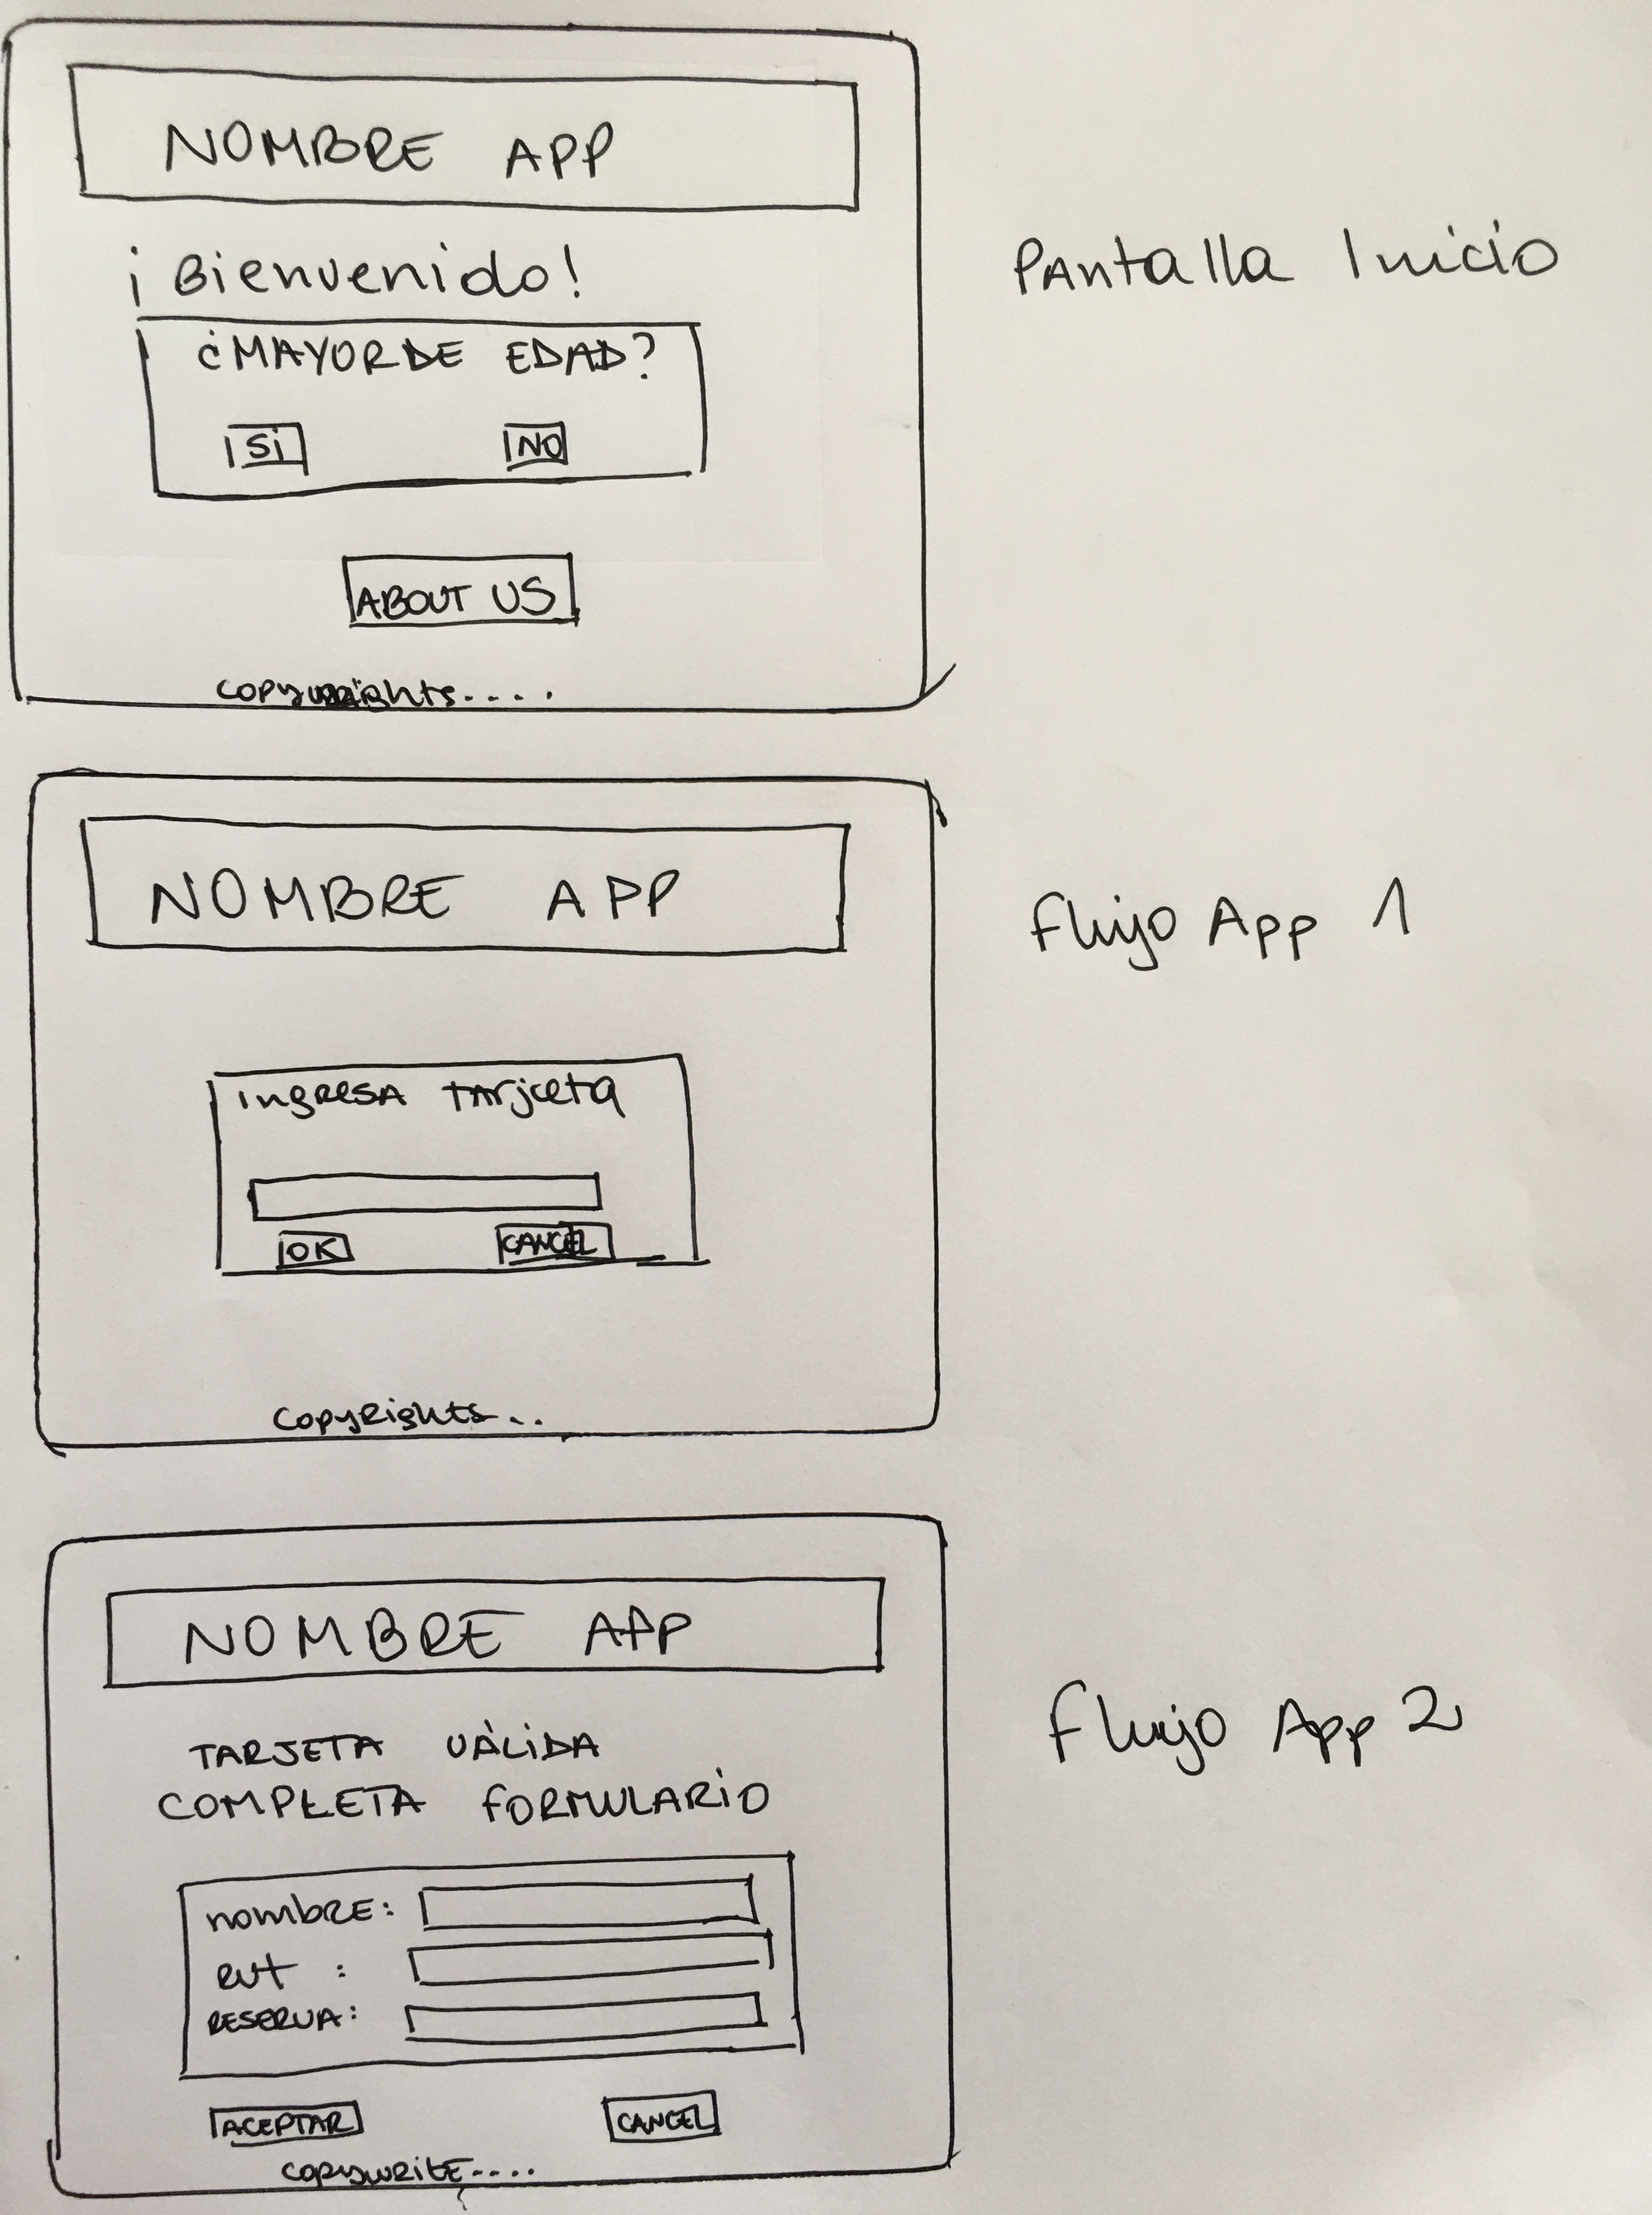 NOMBRE APP
¡Bienvenido!
¿MAYOR DE EDAD?
Si NO
ABOUT US
copyrights....
Pantalla Inicio
NOMBRE APP
ingresa tarjeta
OK CANCEL
copyrights...
Flujo App 1
NOMBRE APP
TARJETA VÁLIDA
COMPLETA FORMULARIO
nombre:
rut :
RESERVA:
ACEPTAR CANCEL
copywrite....
Flujo App 2